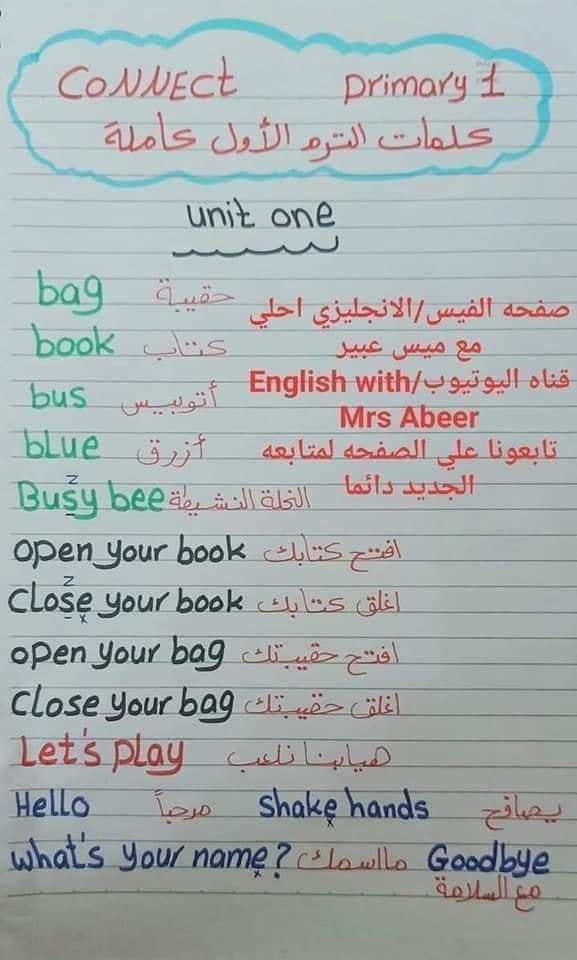 CONNECT primary 1
كلمات الترم الأول كاملة
unit one
bag حقيبة
صفحه الفيس/الانجليزي احلي
book كتاب
مع ميس عبير
bus أتوبيس
قناه اليوتيوب/English with
Mrs Abeer
blue أزرق
تابعونا علي الصفحه لمتابعه
الجديد دائما
z
Busy bee النحلة النشيطة
open your book افتح كتابك
z
Close your book اغلق كتابك
x
open your bag افتح حقيبتك
Close your bag اغلق حقيبتك
Let's play هيا بنا نلعب
Hello مرحباً Shake hands يصافح
x
what's your name? ما اسمك Goodbye
x
مع السلامة